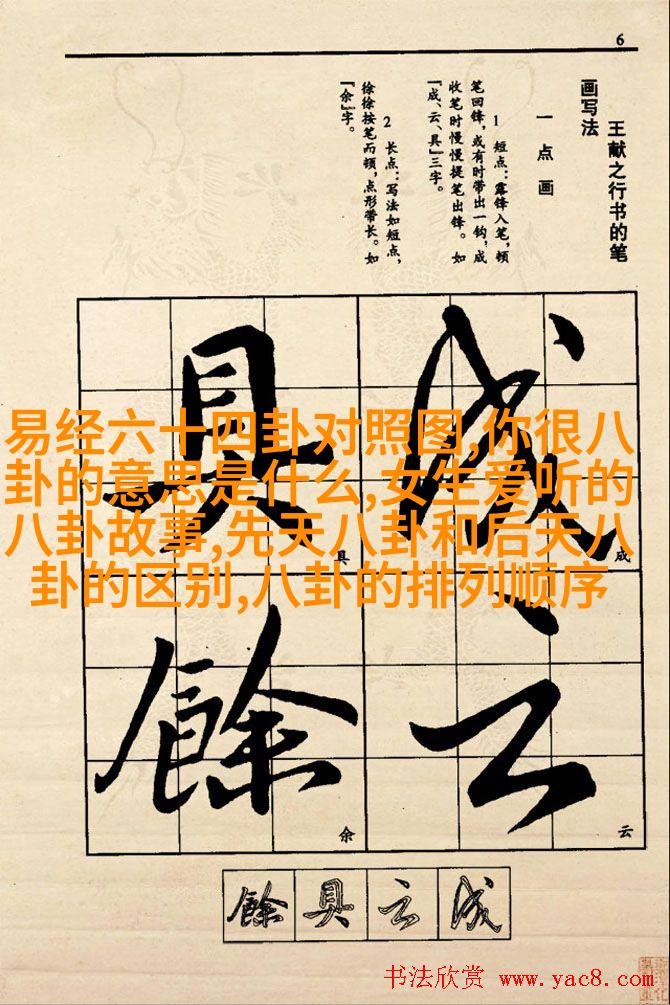 6
王献之行书的笔
画写法
一 点 画
1 短点：露锋入笔，顿
笔回锋，或有时带出一钩，成
收笔时慢慢提笔出锋。如
“成、云、具”三字。
2 长点：写法如短点，
徐徐按笔而顿，点形带长。如
“余”字。
成
具
云
餘
成
具
云
余
易经六十四卦对照图,你很八
卦的意思是什么,女生爱听的
八卦故事,先天八卦和后天八
卦的区别,八卦的排列顺序
餘 具 云 成
书法欣赏 www.yac8.com